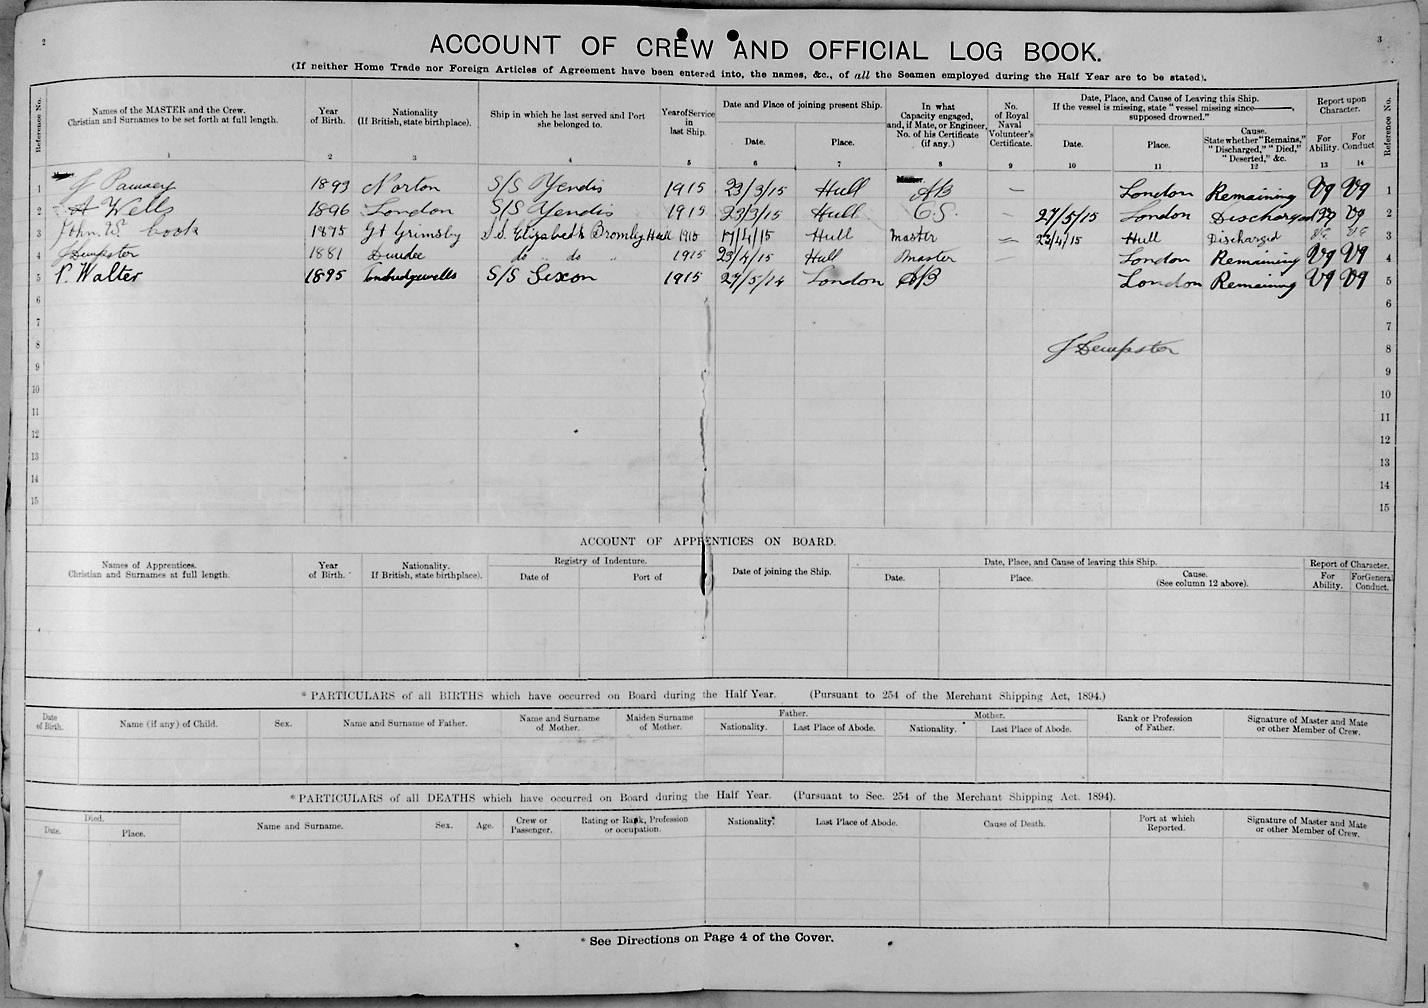 2
3
ACCOUNT OF CREW AND OFFICIAL LOG BOOK.
(If neither Home Trade nor Foreign Articles of Agreement have been entered into, the names, &c., of all the Seamen employed during the Half Year are to be stated).
Reference No.
Names of the MASTER and the Crew.
Christian and Surnames to be set forth at full length.
1
Year
of Birth.
2
Nationality
(If British, state birthplace).
3
Ship in which he last served and Port
she belonged to.
4
Year of Service
in
last Ship.
5
Date and Place of joining present Ship.
Date.
6
Place.
7
In what
Capacity engaged,
and, if Mate, or Engineer,
No. of his Certificate
(if any.)
8
No.
of Royal
Naval
Volunteer's
Certificate.
9
Date, Place, and Cause of Leaving this Ship.
If the vessel is missing, state "vessel missing since———,
supposed drowned."
Date.
10
Place.
11
Cause.
State whether "Remains,"
"Discharged," "Died,"
"Deserted," &c.
12
Report upon
Character.
For
Ability.
13
For
Conduct
14
Reference No.
1 J 1893 Norton S/S Yendis 1915 23/3/15 Hull AB — London Remaining Vg Vg 1
2 A Wells 1896 London S/S Yendis 1915 23/3/15 Hull O.S. - 27/5/15 London Discharged Vg Vg 2
3 John. W. 1875 Gt Grimsby S.S. Elizabeth Bromley Hull 1915 17/4/15 Hull Master 23/4/15 Hull Discharged VG VG 3
4 J Dempster 1881 Dundee do " do " 1915 23/4/15 Hull Master — London Remaining Vg Vg 4
5 P. Walter 1895 Tonbridgewells S/S 1915 27/5/14 London A/B London Remaining Vg Vg 5
6 6
7 7
8 J Dempster 8
9 9
10 10
11 11
12 12
13 13
14 14
15 15
ACCOUNT OF APPRENTICES ON BOARD.
Names of Apprentices.
Christian and Surnames at full length.
Year
of Birth.
Nationality.
If British, state birthplace).
Registry of Indenture.
Date of
Port of
Date of joining the Ship.
Date, Place, and Cause of leaving this Ship.
Date.
Place.
Cause.
(See column 12 above).
Report of Character.
For
Ability.
For General
Conduct.
* PARTICULARS of all BIRTHS which have occurred on Board during the Half Year. (Pursuant to 254 of the Merchant Shipping Act, 1894.)
Date
of Birth.
Name (if any) of Child.
Sex.
Name and Surname of Father.
Name and Surname
of Mother.
Maiden Surname
of Mother.
Father.
Nationality.
Last Place of Abode.
Mother.
Nationality.
Last Place of Abode.
Rank or Profession
of Father.
Signature of Master and Mate
or other Member of Crew.
* PARTICULARS of all DEATHS which have occurred on Board during the Half Year. (Pursuant to Sec. 254 of the Merchant Shipping Act. 1894).
Died.
Date.
Place.
Name and Surname.
Sex.
Age.
Crew or
Passenger.
Rating or Rank, Profession
or occupation.
Nationality.
Last Place of Abode.
Cause of Death.
Port at which
Reported.
Signature of Master and Mate
or other Member of Crew.
* See Directions on Page 4 of the Cover.